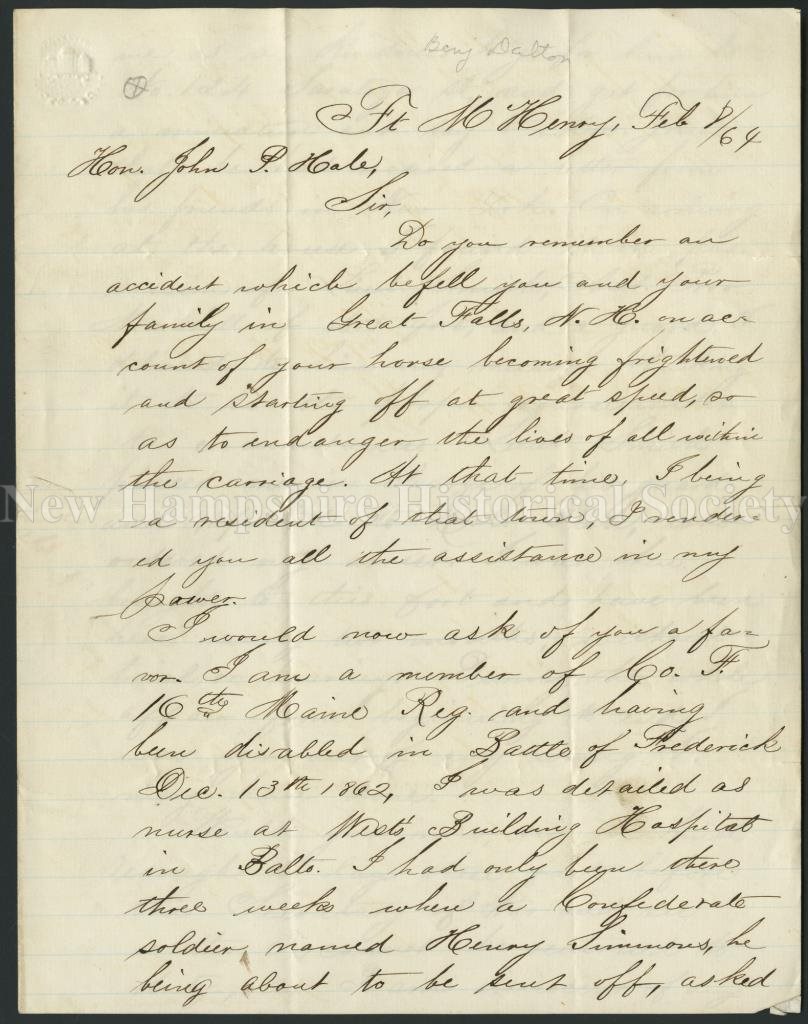 Benj Dalton
Ft McHenry, Feb 8/64
Hon. John P. Hale,
Sir,
Do you remember an
accident which befell you and your
family in Great Falls, N. H. on ac-
count of your horse becoming frightened
and starting off at great speed, so
as to endanger the lives of all within
the carriage. At that time, I being
New Hampshire Historical Society
a resident of that town, I render-
ed you all the assistance in my
power.
I would now ask of you a fa-
vor. I am a member of Co. F.
16th Maine Reg. and having
been disabled in Battle of Frederick
Dec. 13th 1862, I was detailed as
nurse at West's Building Hospital
in Balto. I had only been there
three weeks when a Confederate
soldier, named Henry Simmons, he
being about to be sent off, asked